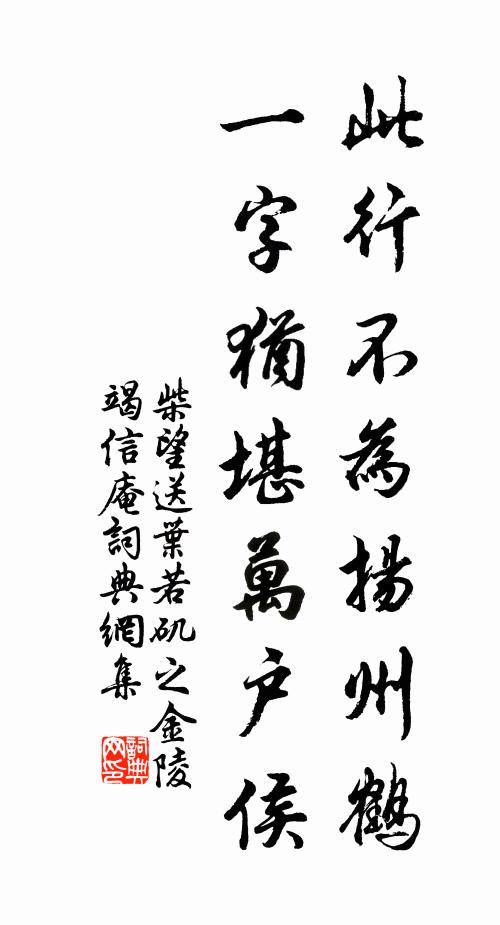 此行不為揚州鶴
一字猶堪萬户侯
柴望送葉若矶之金陵
竭信庵詞典網集
詞典網印